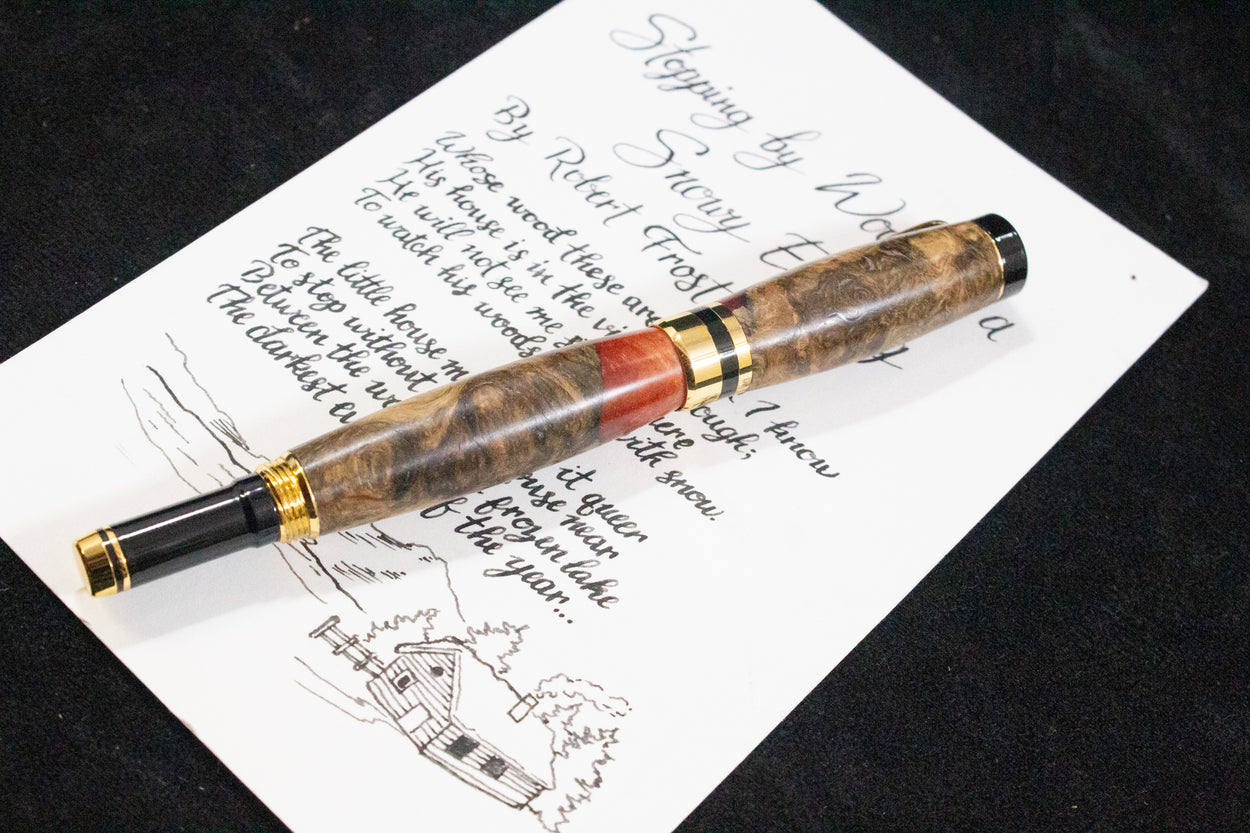 Stopping by a
Snowy
By Robert Frost
Whose wood these are I know
His house is in the
He will not see me
To watch his woods with snow.
The little house it queer
To stop without near
Between the frozen lake
The darkest of the year...